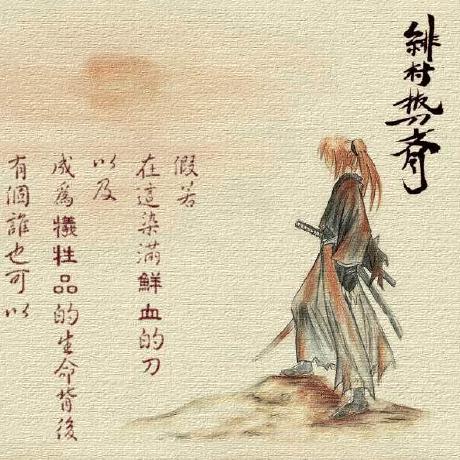 緋村抜刀斎
假若
在這染滿鮮血的刀
以及
成爲犧牲品的生命背後
有個誰也可以